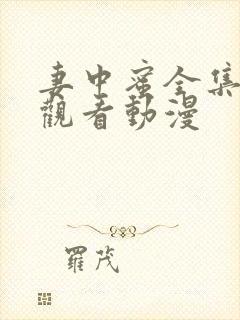 妻中蜜全集
觀看動漫
羅茂